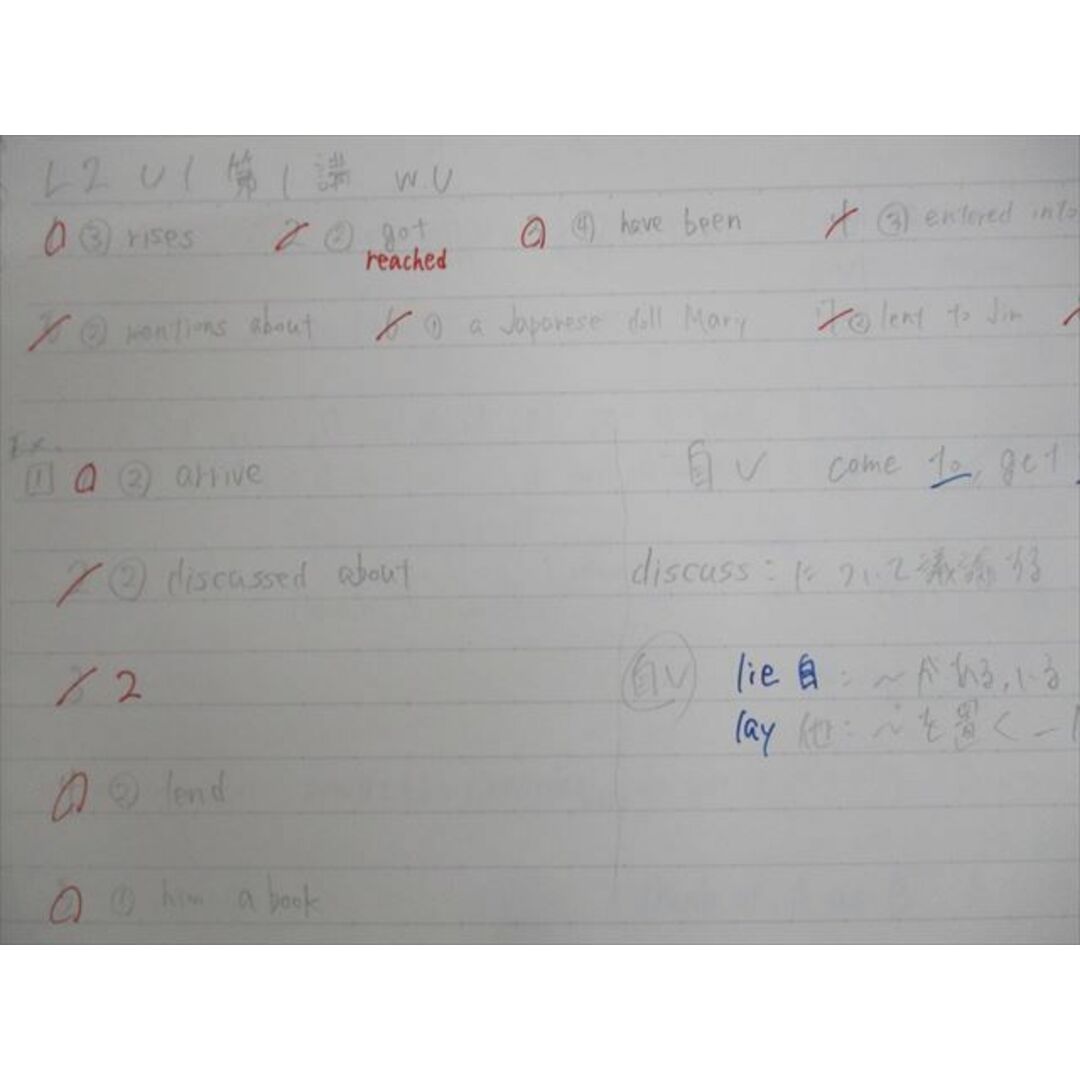 L2 U1 第1講 WU
1 ③ rises 2 ② got 3 ④ have been 4 ③ entered into
reached
5 ② mentions about 6 ① a Japanese doll Mary 7 ② lent to Jim
Ex.
1 ② arrive 自V come to, get
2 ② discussed about discuss: について議論する
3 2 自V lie 自: 〜がある, いる
lay 他: 〜を置く
② lend
① him a book